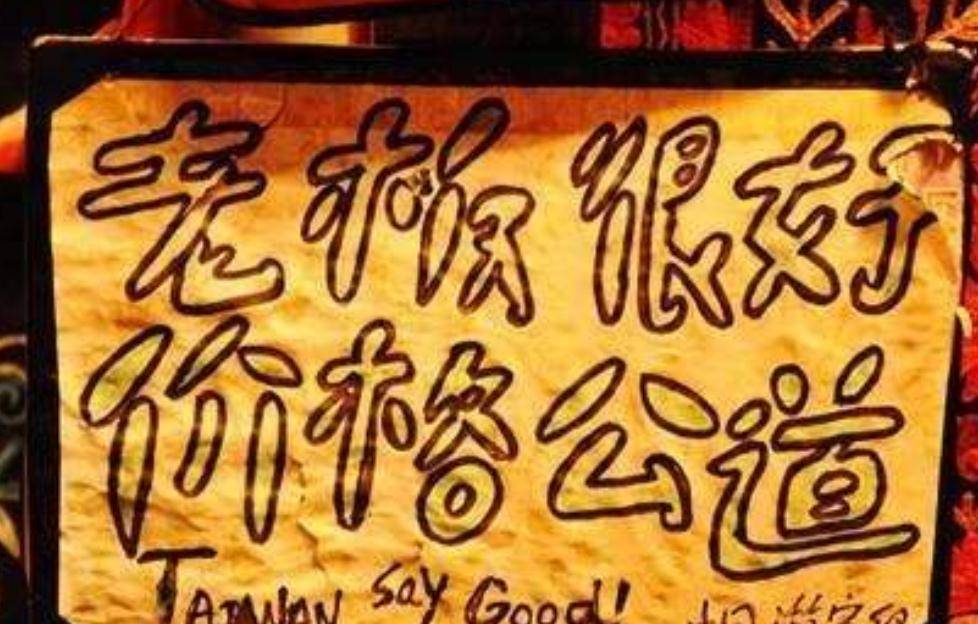 老板很好
价格公道
TAIWAN Say Good!